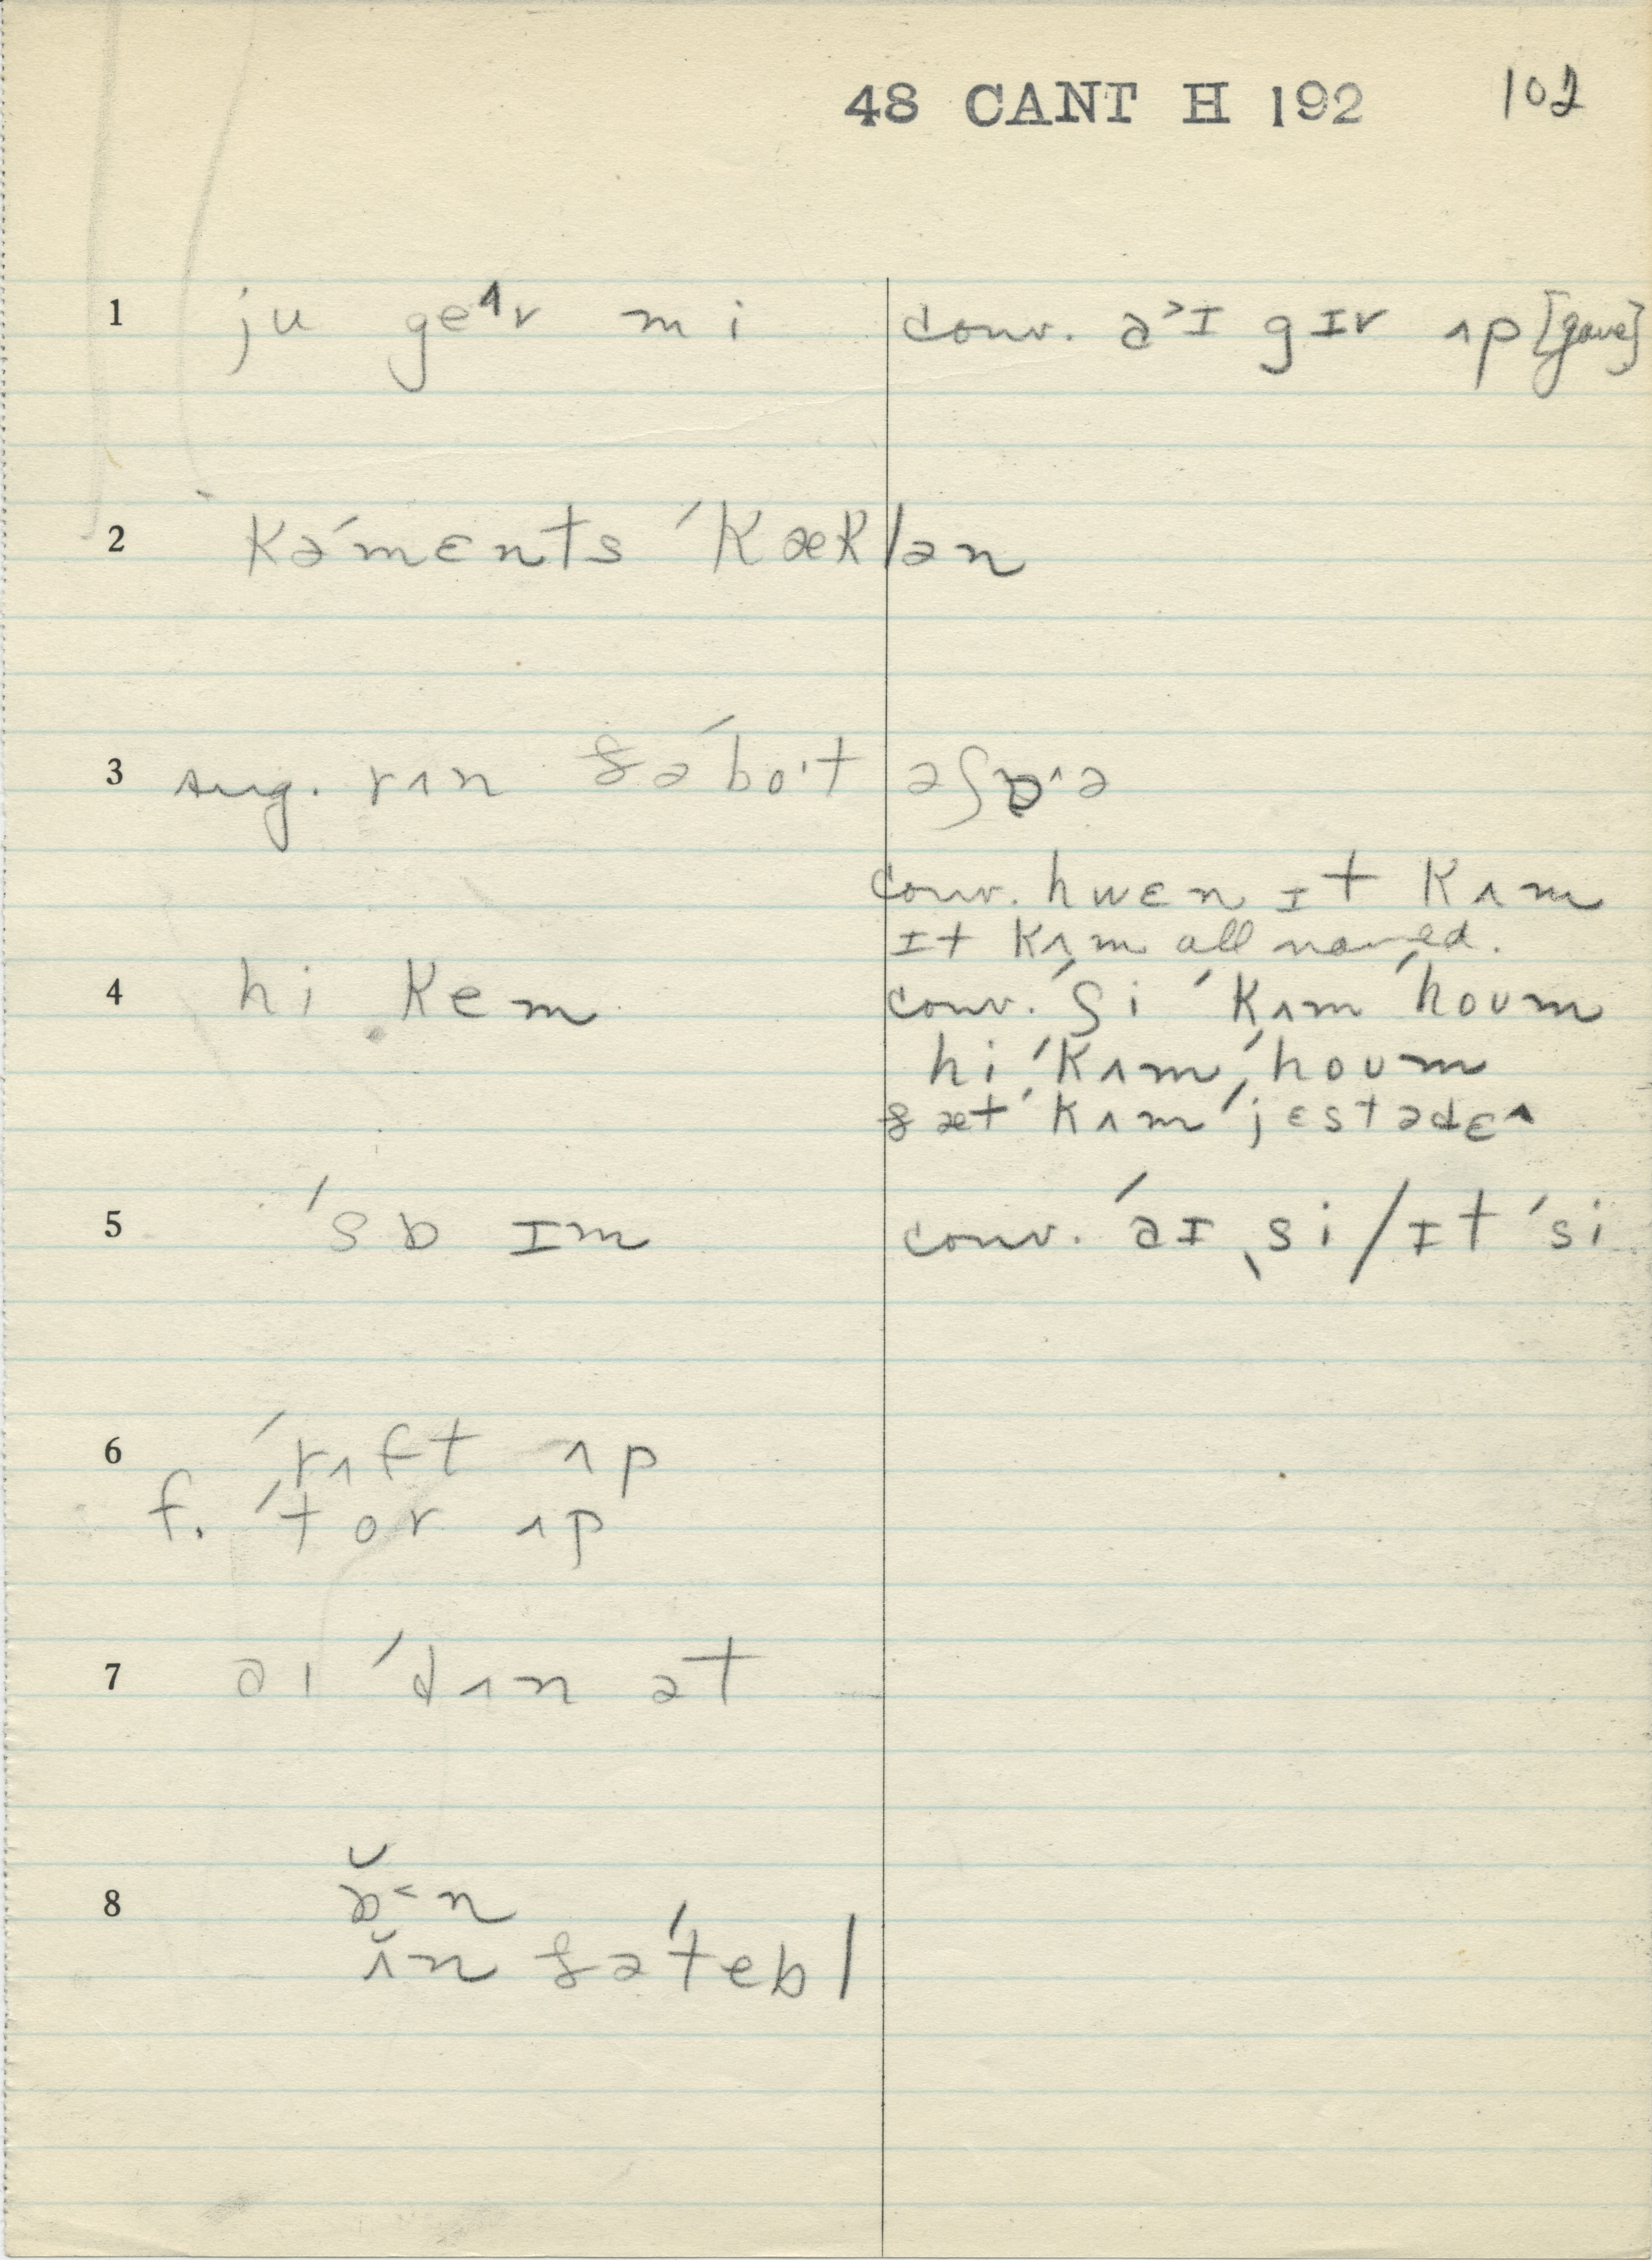 48 CANT H 192 102
1 ju geʌv mi conv. a˃ɪ gɪv ʌp [gave]
2 kəˈmɛnts ˈkæklən
3 sug. rʌn ðəˈbo·t əʃɒ˄ə
conv. hwɛn ɪt kʌm
ɪt kʌm all named.
4 hi kem conv. ˈʃi ˈkʌm ˈhoʊm
hi ˈkʌm ˈhoʊm
ðæt ˈkʌm ˈjɛstədɛ˄
5 ˈsɒ ɪm conv. ˈaɪ ˌsi / ɪt ˈsi
6 ˈrʌft ʌp
f. ˈtor ʌp
7 aɪ ˈdʌn ət
8 ɒ̆˂n
ʌ̆n ðəˈtebl